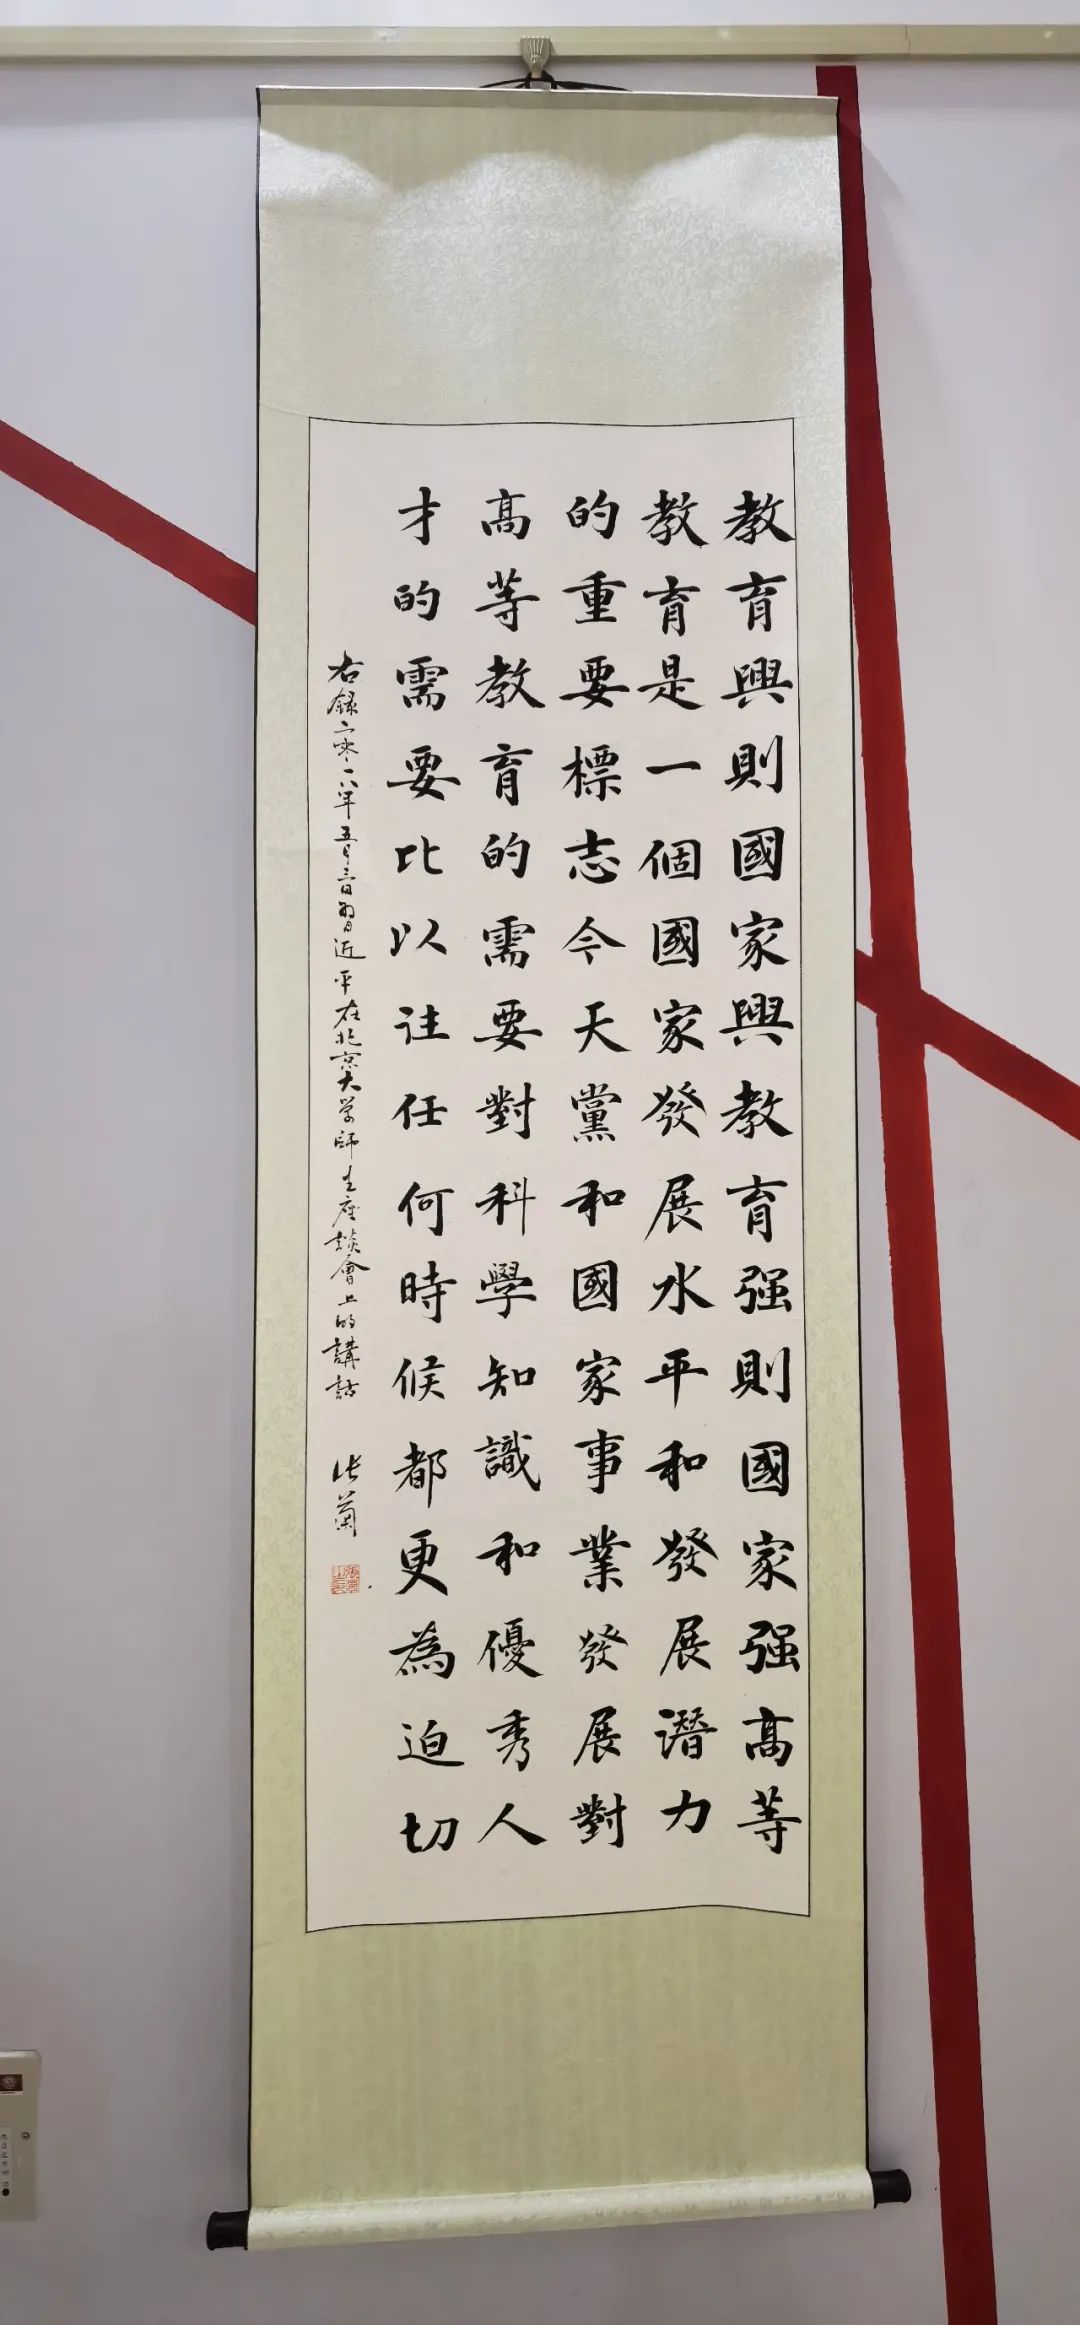 教育興則國家興教育强則國家强高等
教育是一個國家發展水平和發展潛力
的重要標志今天黨和國家事業發展對
高等教育的需要對科學知識和優秀人
才的需要比以往任何時候都更為迫切
右録二零一八年五月二日習近平在北京大學師生座談會上的講話
張蘭